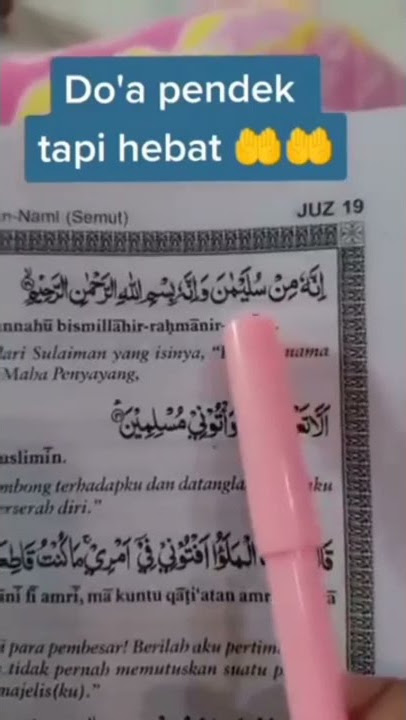 Do'a pendek
tapi hebat 🤲🤲
n-Naml (Semut)
JUZ 19
اِنَّهٗ مِنْ سُلَيْمٰنَ وَاِنَّهٗ بِسْمِ اللّٰهِ الرَّحْمٰنِ الرَّحِيْمِ
nnahū bismillāhir-raḥmānir-
lari Sulaiman yang isinya, “ nama
Maha Penyayang,
وَأْتُوْنِيْ مُسْلِمِيْنَ
uslimīn.
mbong terhadapku dan datangla ku
erserah diri.”
الْمَلَؤُا اَفْتُوْنِيْ فِيْٓ اَمْرِيْ مَا كُنْتُ
ūnī fī amrī, mā kuntu qāṭi‘atan amr
i para pembesar! Berilah aku pertim
tidak pernah memutuskan suatu p
majelis(ku).”